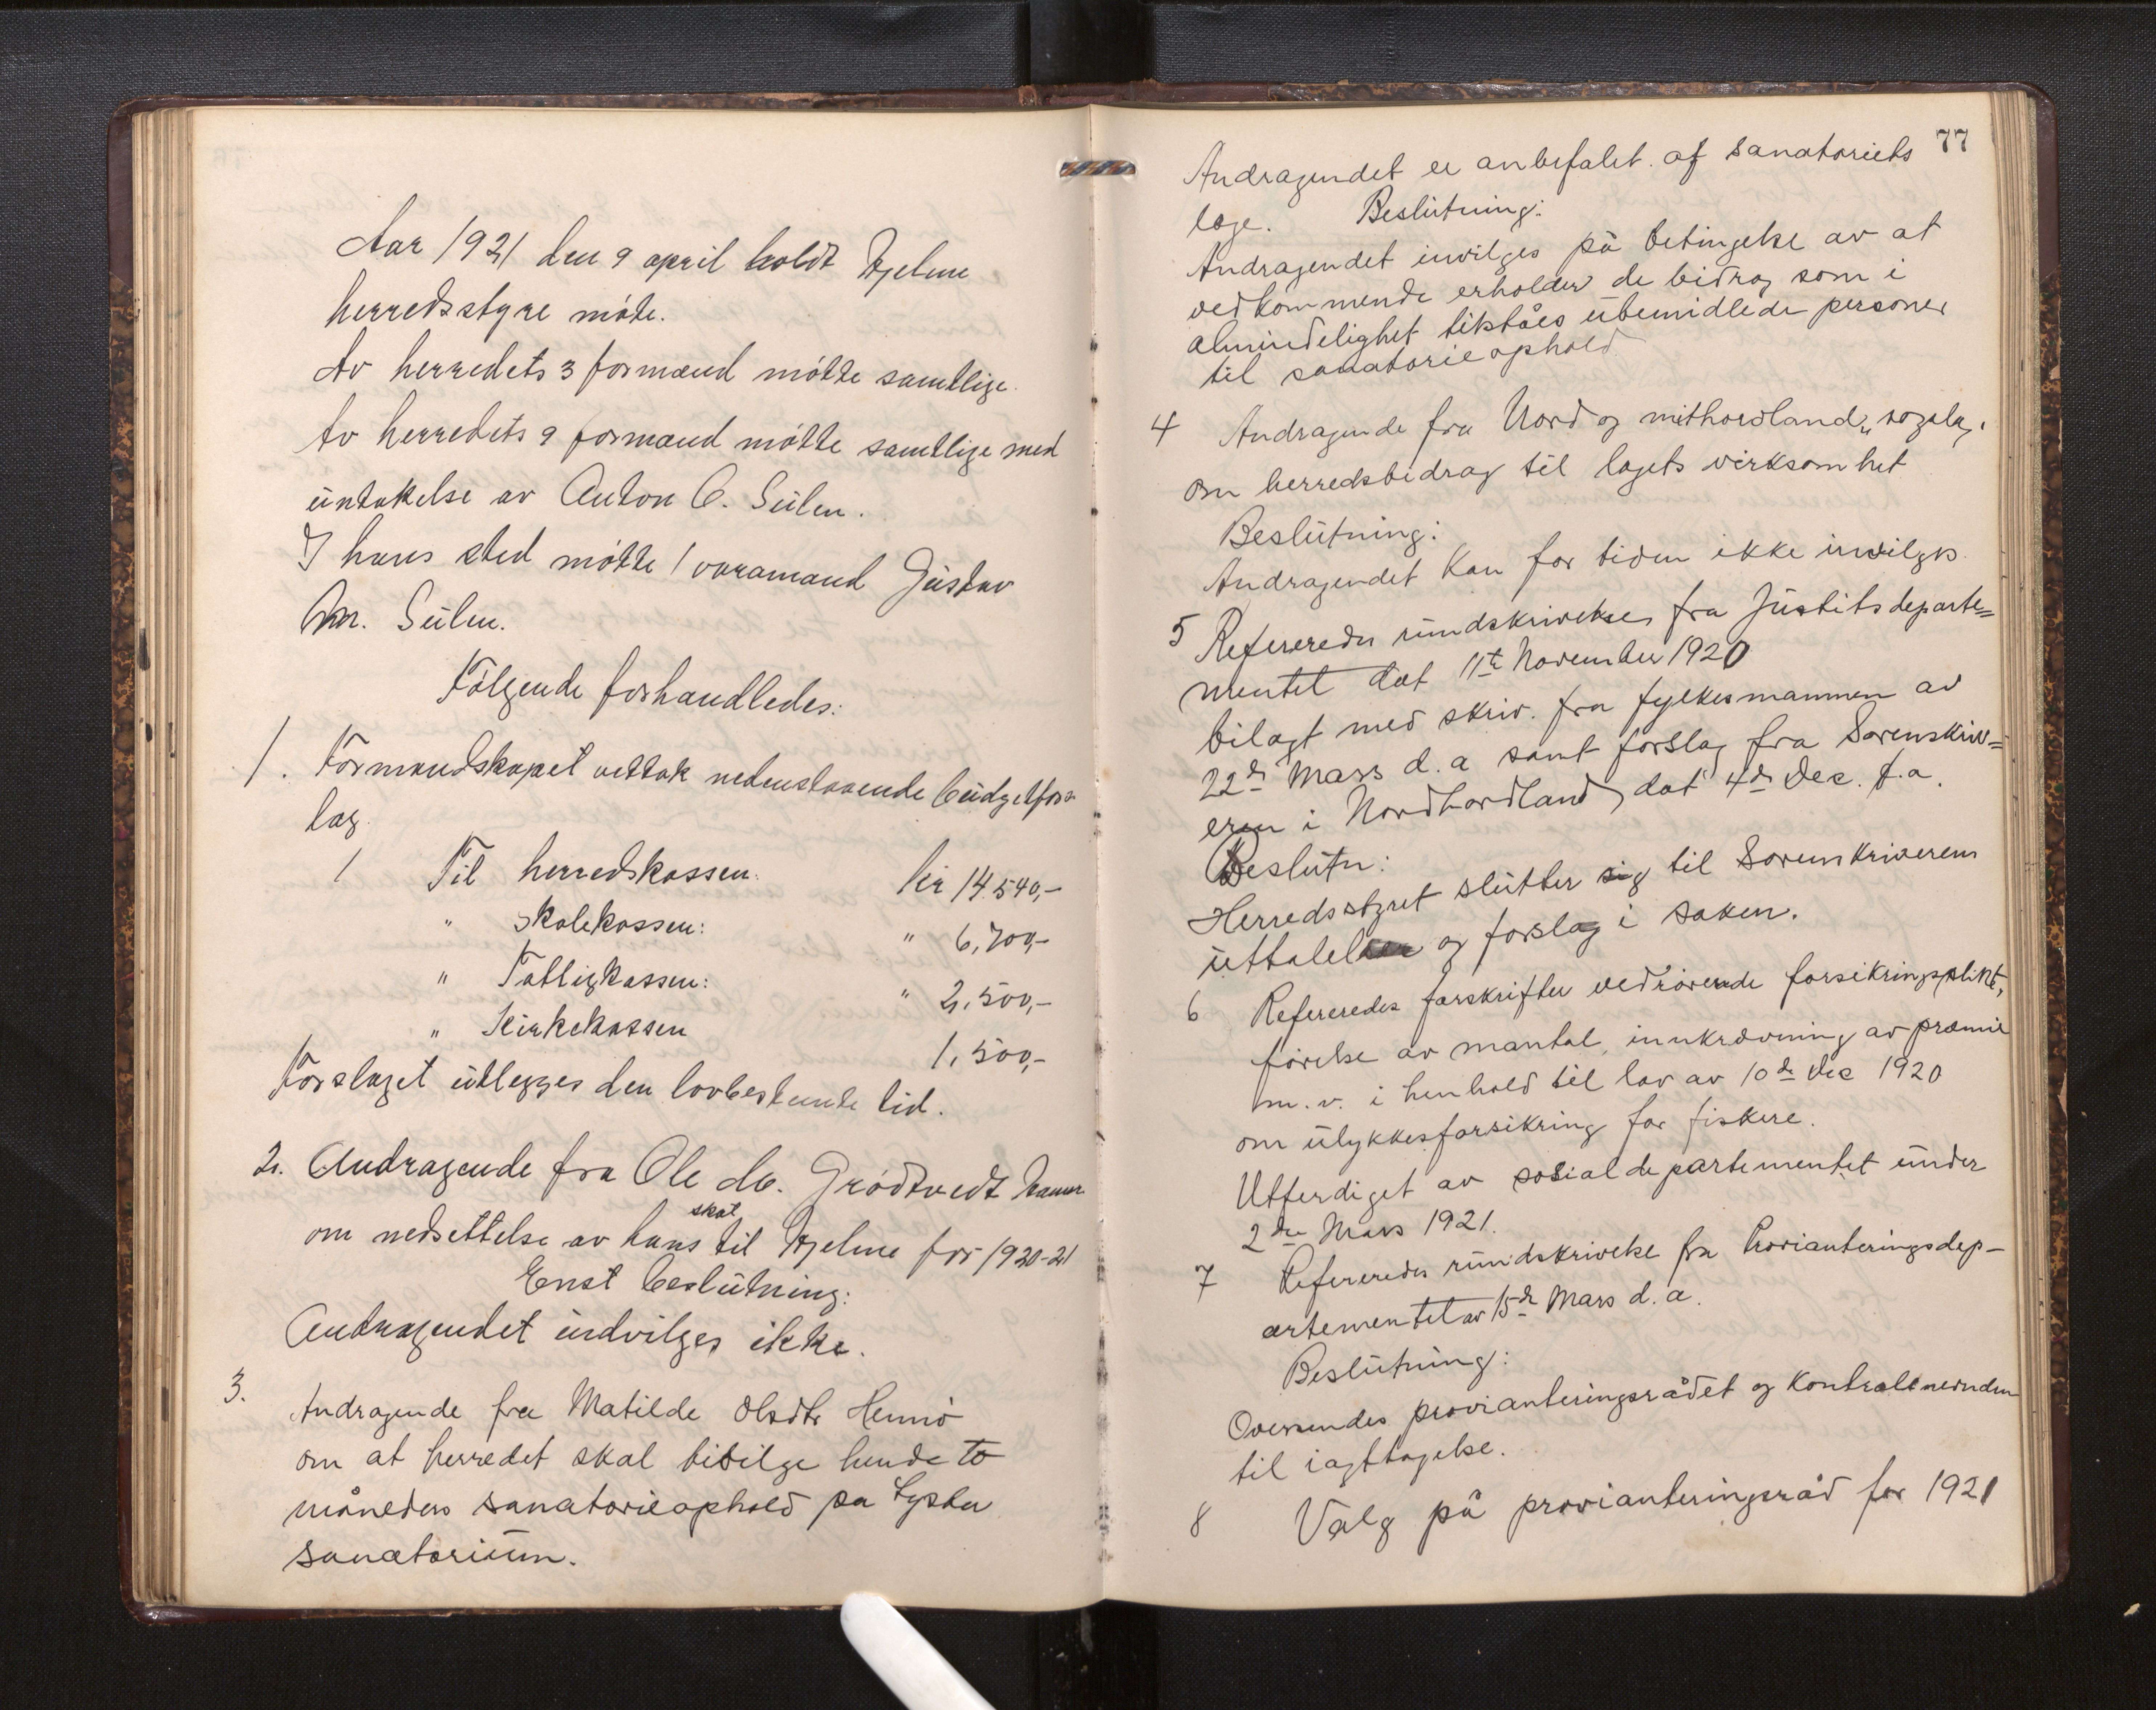 Aar 1921 den 9 april holdt Hjelme
herredsstyre møte.
Av herredets 3 formænd møtte samtlige.
Av herredets 9 formænd møtte samtlige med
untakelse av Anton O. Sulen.
I hans sted møtte 1 varamand Gustav
M. Sulen.
Følgende forhandledes:
1. Formandskapet vettok nedenstaaende budgetfors-
lag.
1 Til herredskassen: kr 14.540,-
" skolekassen: " 6,700,-
" Fattigkassen: " 2,500,-
" Kirkekassen 1,500,-
Forslaget utlegges den lovbestemte tid.
2. Andragende fra Ole M. Grødtvedt
skat
om nedsettelse av hans til Hjelme for 1920-21
Enst beslutning:
Andragendet indvilges ikke.
3.
Andragende fra Matilde Olsdtr Hennø
om at herredet skal bivilge hende to
måneders sanatorieophold pa Lyster
sanatorium.
77
Andragendet er anbefalet af sanatoriets
læge. Beslutning:
Andragendet invilges på betingelse av at
vedkommende erholder de bidrag som i
almindelighet tilståes ubemidlede personer
til sanatorieophold
4 Andragende fra Nord og mithordland,
om herredsbidrag til lagets virksomhet
Beslutning:
Andragendet kan for tiden ikke invilges.
5 Refereredes rundskrivelse fra Justitsdeparte=
mentet dat 11te November 1920
bilagt med skriv. fra fylkesmannen av
22de Mars d.a samt forslag fra Sorenskriv=
eren i Nordhordland dat 4de Dec. f.a.
Beslutn:
Herredsstyret slutter sig til Sorenskriverens
uttalelse og forslag i saken.
6 Refereredes forskrifter vedrørende forsikringsplikt,
førelse av mantal, innkrævning av præmie
m.v. i henhold til lov av 10de Dec 1920
om ulykkesforsikring for fiskere.
Utferdiget av sosialdepartementet under
2den Mars 1921.
7 Refereredes rundskrivelse fra Provianteringsdep-
artementet av 15de Mars d.a.
Beslutning:
Oversendes provianteringsrådet og Kontrollnevnden
til iagttagelse.
8 Valg på provianteringsråd for 1921